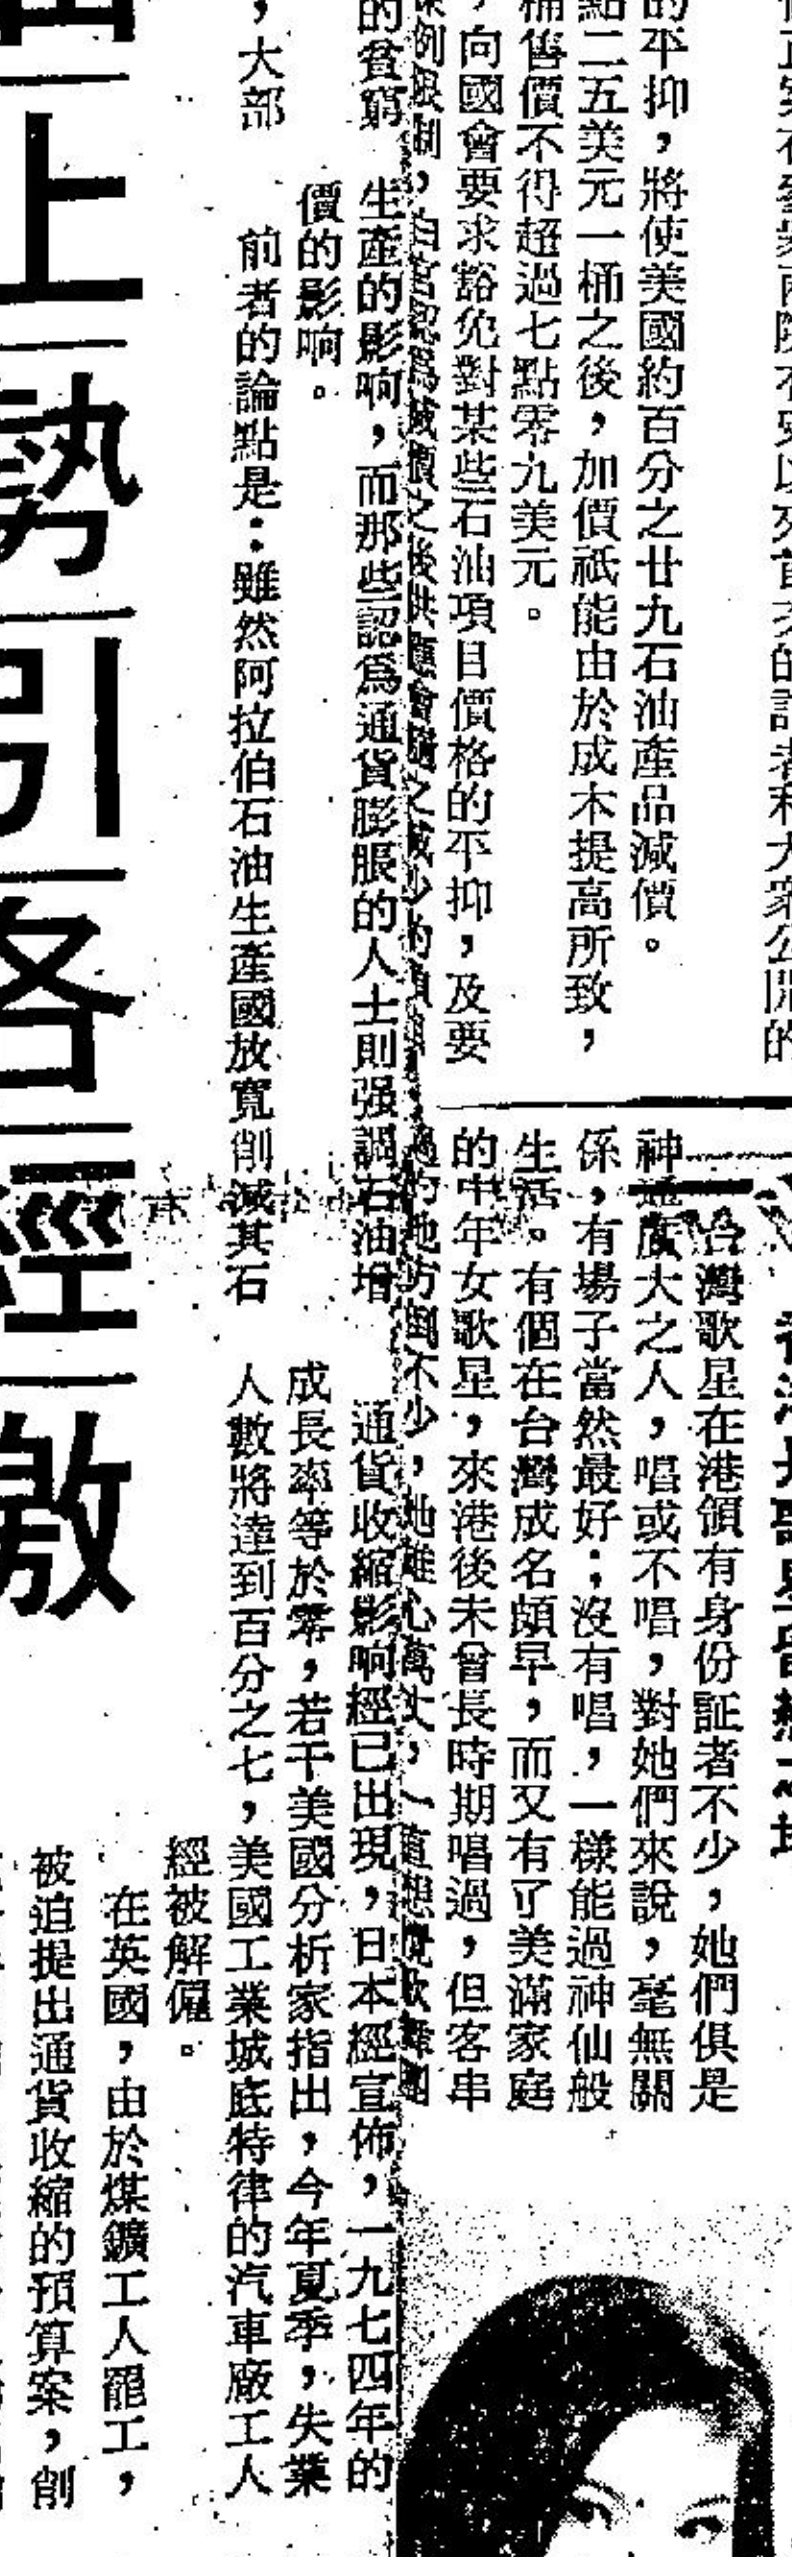 的平抑，將使美國約百分之廿九石油產品減價。
點二五美元一桶之後，加價祇能由於成本提高所致，
桶售價不得超過七點零九美元。
，向國會要求豁免對某些石油項目價格的平抑，及要
的貧窮
，大部
生產的影响，而那些認爲通貨膨脹的人士則强調石油增
價的影响。
前者的論點是：雖然阿拉伯石油生產國放寬削減其石
台灣歌星在港領有身份証者不少，她們俱是
神通廣大之人，唱或不唱，對她們來說，毫無關
係，有場子當然最好；沒有唱，一樣能過神仙般
生活。有個在台灣成名頗早，而又有了美滿家庭
的中年女歌星，來港後未曾長時期唱過，但客串
過的地方倒不少，她雄心萬丈，一直想
通貨收縮影响經已出現，日本經宣佈，一九七四年的
成長率等於零，若干美國分析家指出，今年夏季，失業
人數將達到百分之七，美國工業城底特律的汽車廠工人
經被解僱。
在英國，由於煤鑛工人罷工，
被迫提出通貨收縮的預算案，削
上勢引各經激